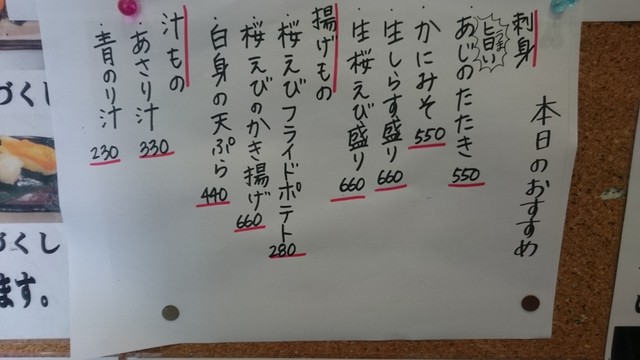 本日のおすすめ
刺身
ヒ旨い
・あじのたたき 550
・かにみそ 550
・生しらす盛り 660
・生桜えび盛り 660
揚げもの
桜えびフライドポテト 280
桜えびのかき揚げ 660
・白身の天ぷら 440
汁もの
・あさり汁 330
・青のり汁 230
づくし
づくし
ます。